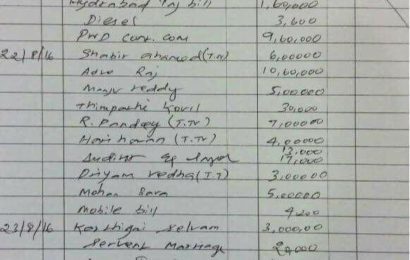 Hyderabad Taj bill 1,60,000
Diesel 3,600
PWD Cont. Com 9,60,000
22/8/16 Shabir ahamed (T.Tr) 6,00000
Adve Raj 10,60,000
Manju reddy 5,00000
Thirupathi Kovil 30,000
R. Pandeey (T.Tr) 7,00000
Hari haran (T.Tr) 4,00000
13,000
17,000
Priyam redha (T.T) 3,00000
Mohan Rara 5,00000
Mobile bill 4200
23/8/16 Karthigai Selvam 3,00,000
Servent Marriage